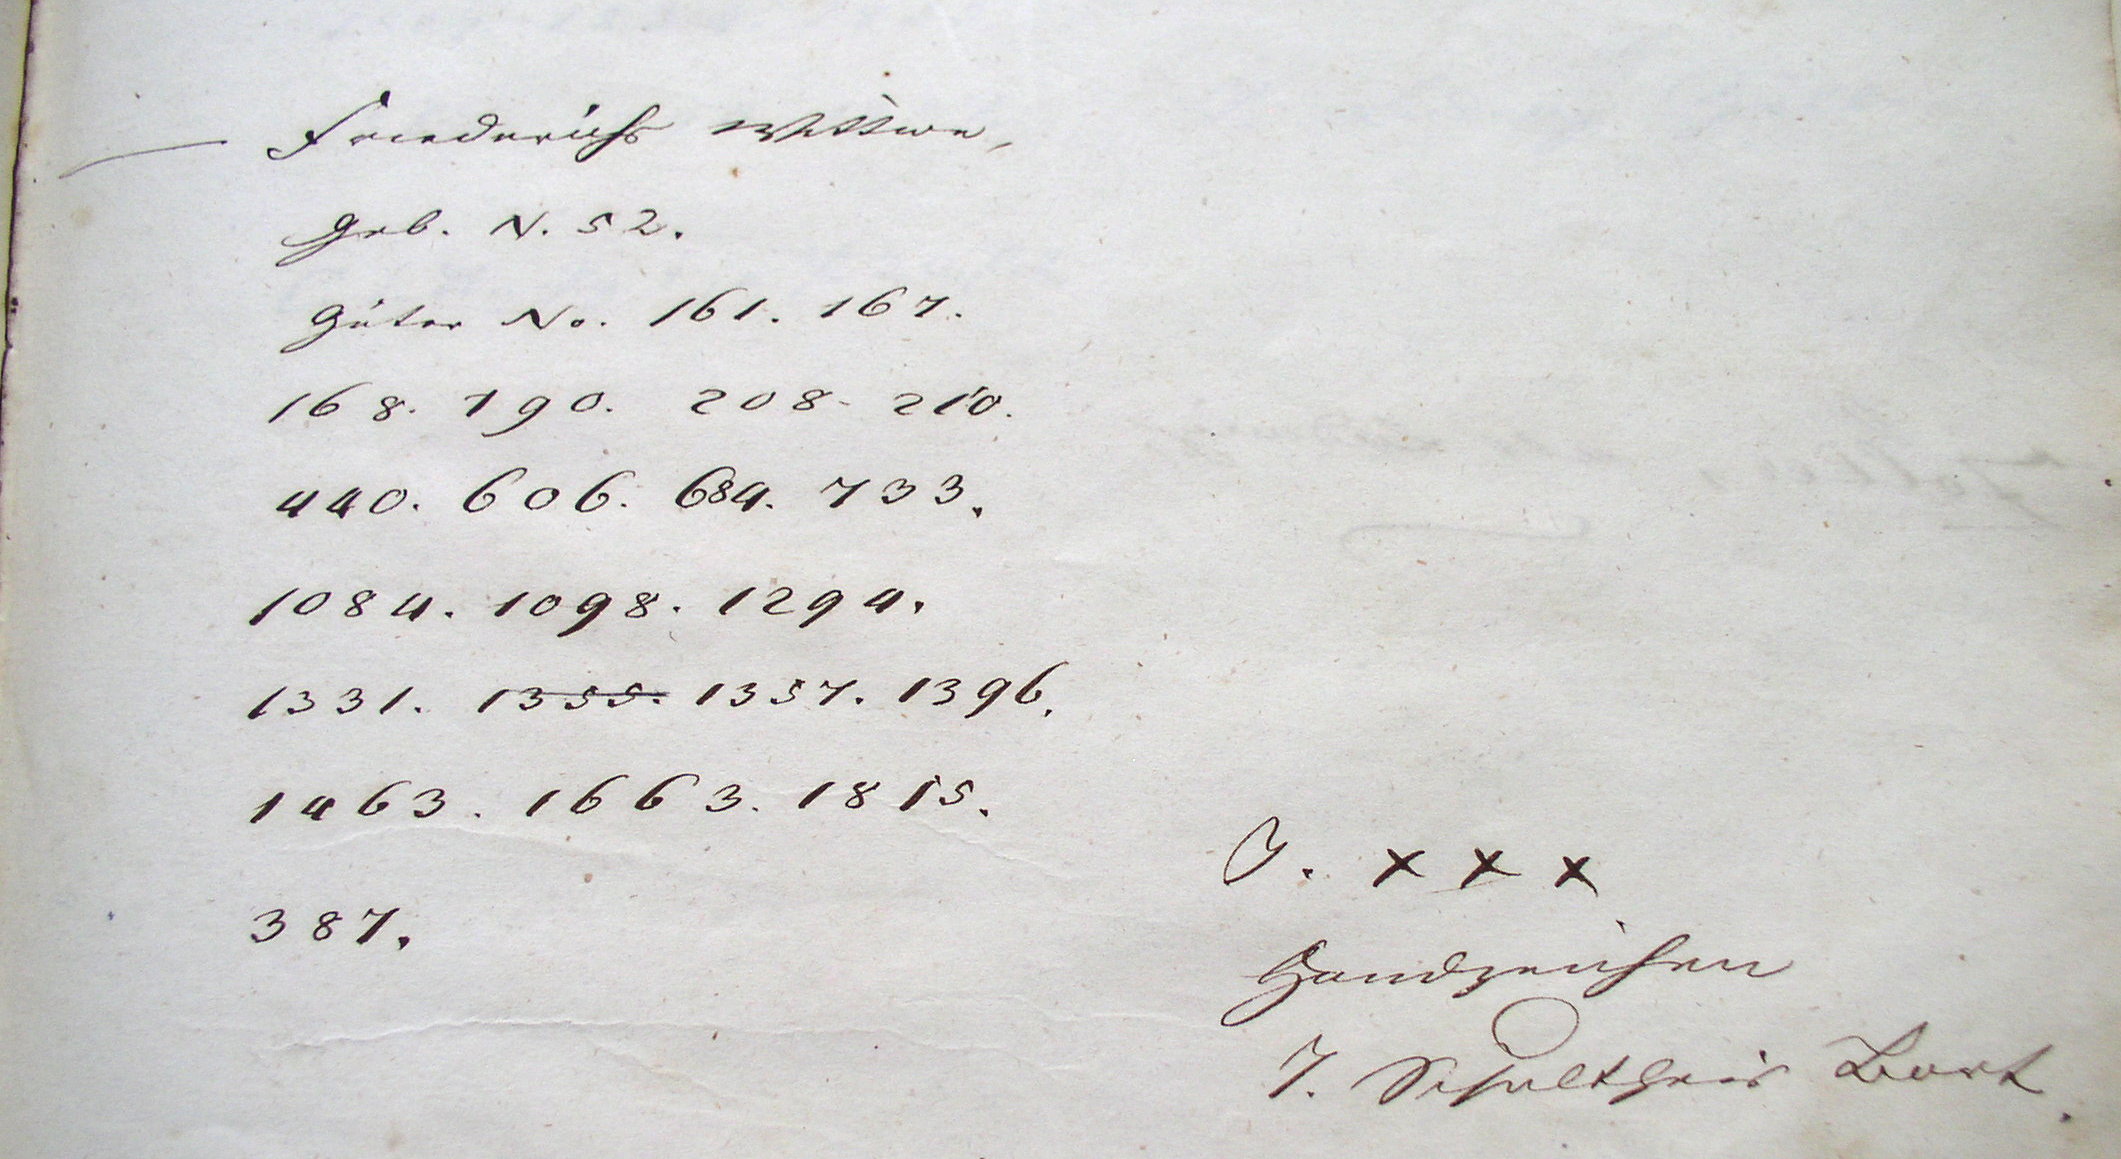 Friederichs Wittwe,
Geb. N. 52.
Güter No. 161. 167.
168. 190. 208. 210.
440. 606. 684. 733.
1084. 1098. 1294.
1331. 1355. 1357. 1396.
1463. 1663. 1815.
387.
J. x x x
Handzeichen
T. Schultheis Bort